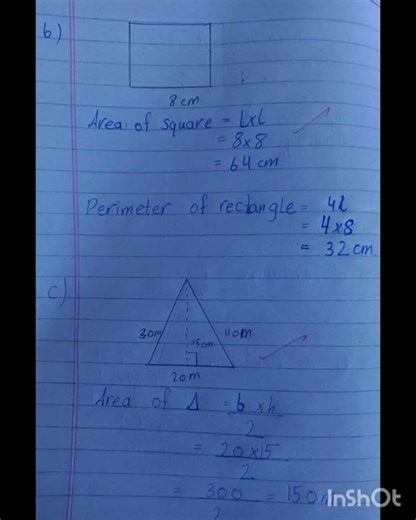 b)
8 cm
Area of square = l×l
= 8×8
= 64 cm
Perimeter of rectangle = 4l
= 4×8
= 32 cm.
c)
30m 15cm 40m
20m
Area of Δ = b×h
2
= 20×15
2
= 300 = 150
2
InShOt